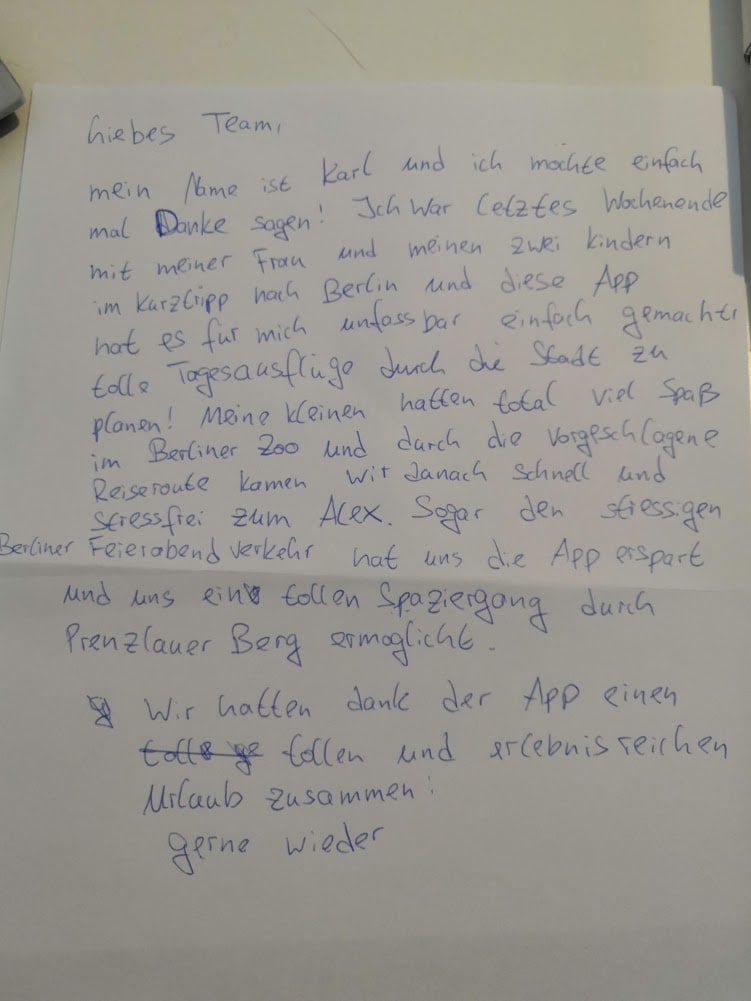 Liebes Team,
mein Name ist Karl und ich mochte einfach
mal Danke sagen! Ich war letztes Wochenende
mit meiner Frau und meinen zwei kindern
im Kurztripp nach Berlin und diese App
hat es für mich unfassbar einfach gemacht
tolle Tagesausflüge durch die Stadt zu
planen! Meine kleinen hatten total viel Spaß
im Berliner Zoo und durch die vorgeschlagene
Reiseroute kamen wir danach schnell und
stressfrei zum Alex. Sogar den stressigen
Berliner Feierabendverkehr hat uns die App erspart
und uns ein tollen Spaziergang durch
Prenzlauer Berg ermoglicht.
Wir hatten dank der App einen
tollen und erlebnisreichen
Urlaub zusammen!
gerne wieder